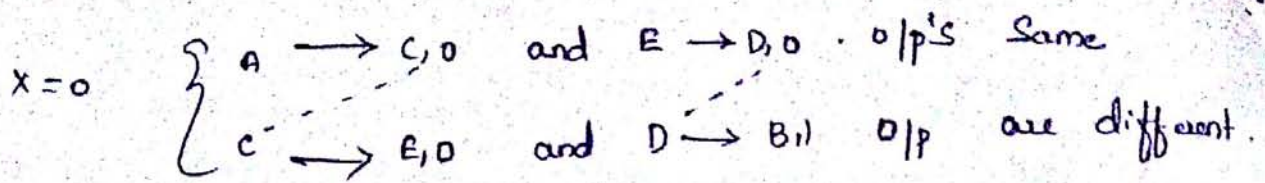 x=0 { A → C,0 and E → D,0 . o/p's Same
C → E,0 and D → B,1 o/p are different.